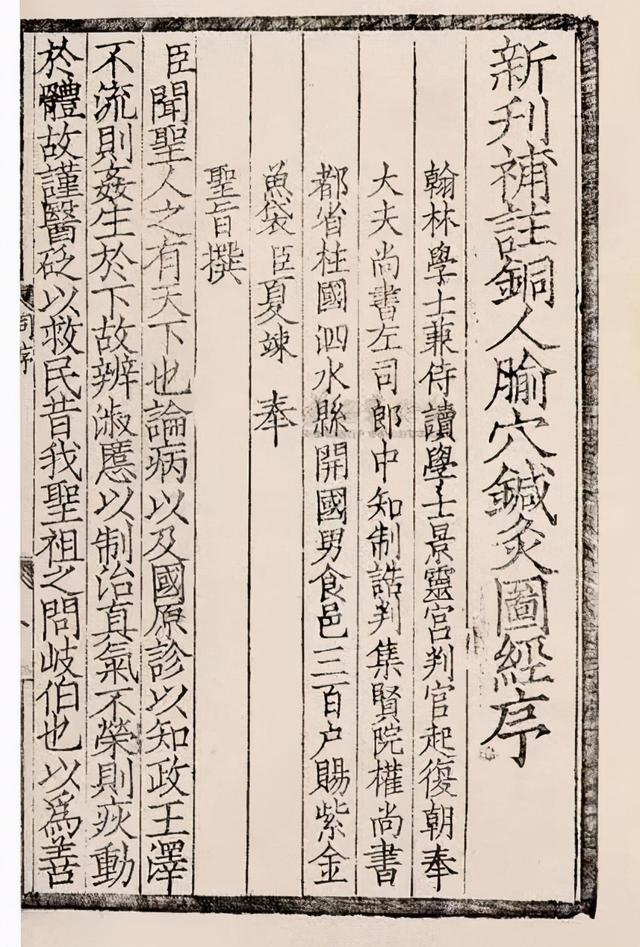 新刋補註銅人腧穴鍼灸圖經序
翰林學士兼侍讀學士景靈宮判官起復朝奉
大夫尚書左司郎中知制誥判集賢院權尚書
都省柱國泗水縣開國男食邑三百户賜紫金
魚袋臣夏竦 奉
聖旨撰
臣聞聖人之有天下也論病以及國原診以知政王澤
不流則姦生於下故辨淑慝以制治真氣不榮則疢動
於體故謹醫砭以救民昔我聖祖之問岐伯也以爲善